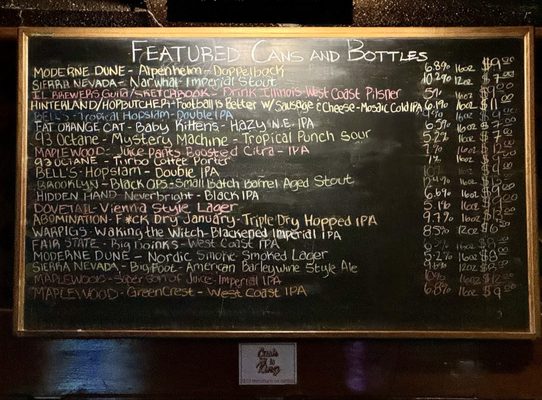 FEATURED CANS AND BOTTLES
MODERNE DUNE - Alpenheim - Doppelbock 6.8% 16oz $9.00
SIERRA NEVADA - Narwhal - Imperial Stout 10.2% 12oz $7
IL BREWERS Guild/SKETCHBOOK - Drink Illinois - West Coast Pilsner 5% 16oz $9
HINTERLAND/HOPBUTCHER - Football is Better w/ Sausage & Cheese - Mosaic Cold IPA 6.1% 16oz $11
BELL'S - Tropical Hopslam - Double IPA
FAT ORANGE CAT - Baby Kittens - Hazy N.E. IPA 6.5% 16oz
93 Octane - Mystery Machine - Tropical Punch Sour 5.2% 16oz
MAPLEWOOD - Juice Pants Boosted Citra - IPA 16oz
93 OCTANE - Turbo Coffee Porter 7% 16oz
BELL'S - Hopslam - Double IPA
BROOKLYN - Black OPS - Small Batch Barrel Aged Stout
HIDDEN HAND - Neverbright - Black IPA 6.6% 16oz
DOVETAIL - Vienna Style Lager 5.1% 16oz
ABOMINATION - F*ck Dry January - Triple Dry Hopped IPA 9.7% 16oz
WARPIGS - Waking the Witch - Blackened Imperial IPA 8.5% 16oz
FAIR STATE - Big Doinks - West Coast IPA 16oz
MODERNE DUNE - Nordic Smoke - Smoked Lager 5.2% 16oz $8
SIERRA NEVADA - Bigfoot - American Barleywine Style Ale 12oz
MAPLEWOOD - Super Son of Juice - Imperial IPA 16oz
MAPLEWOOD - GreenCrest - West Coast IPA 6.8% 16oz $9
Cash is King